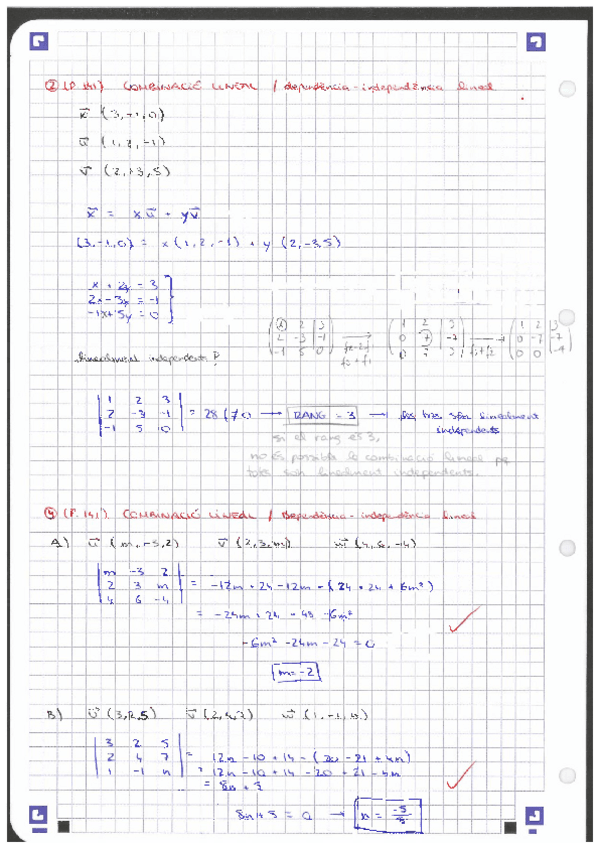 ② (P. 141) COMBINACIÓ LINEAL / dependència - independència lineal
x⃗ (3, -1, 0)
u⃗ (1, 2, -1)
v⃗ (2, -3, 5)
x⃗ = x u⃗ + y v⃗
(3, -1, 0) = x (1, 2, -1) + y (2, -3, 5)
x + 2y = 3
2x - 3y = -1
-1x + 5y = 0
linealment independents?
| 1 2 3 |
| 2 -3 -1 | = 28 (≠0) → RANG = 3 → els tres són linealment independents
| -1 5 0 |
si el rang és 3,
no és possible la combinació lineal pq
tots són linealment independents.
④ (P. 141) COMBINACIÓ LINEAL / dependència - independència lineal
A) u⃗ (m, -3, 2) v⃗ (2, 3, m) w⃗ (4, 6, -4)
| m -3 2 |
| 2 3 m | = -12m + 24 - 12m - (24 + 24 + 6m²)
| 4 6 -4 |
= -24m + 24 - 48 - 6m²
-6m² - 24m - 24 = 0
m = -2
B) u⃗ (3, 2, 5) v⃗ (2, 4, 7) w⃗ (1, -1, n)
| 3 2 5 |
| 2 4 7 | = 12n - 10 + 14 - (20 - 21 + 4n)
| 1 -1 n | = 12n - 10 + 14 - 20 + 21 - 4n
= 8n + 5
8n + 5 = 0 → n = -5/8